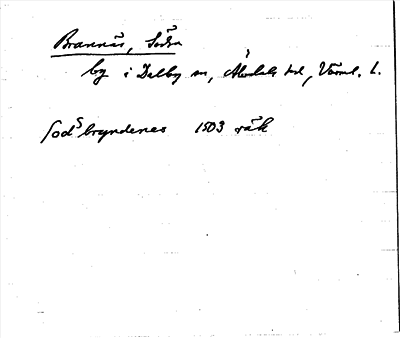 Brannäs, Södra
by i Dalby sn, Älvdals hd, Värml. l.
Sodsbryndenes 1503 räk